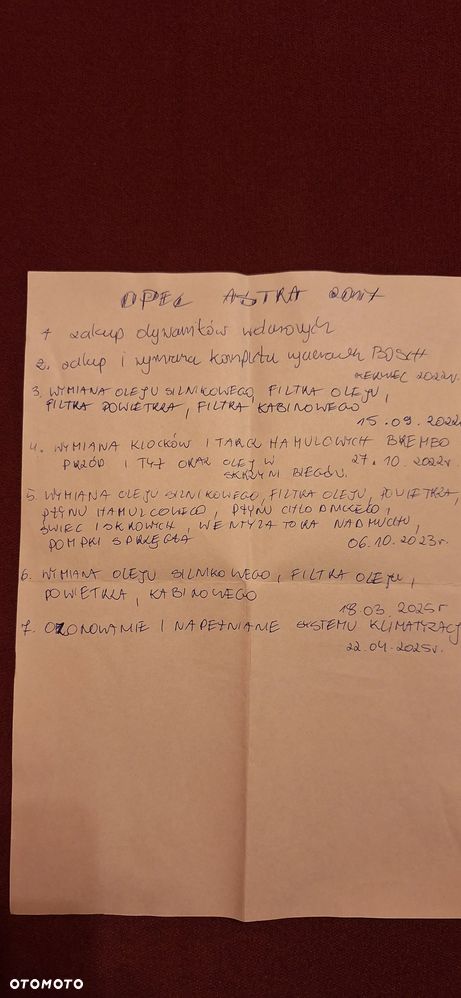 OPEL ASTRA
1 zakup dywaników welurowych
2. zakup i wymiana kompletu wycieraczek BOSCH
CZERWIEC 2022r.
3. WYMIANA OLEJU SILNIKOWEGO, FILTRA OLEJU,
FILTRA POWIETRZA, FILTRA KABINOWEGO
15.09.2022
4. WYMIANA KLOCKÓW I TARCZ HAMULCOWYCH BREMBO
PRZÓD I TYŁ ORAZ OLEJ W
SKRZYNI BIEGÓW. 27.10.2022r.
5. WYMIANA OLEJU SILNIKOWEGO, FILTRA OLEJU, POWIETRZA,
PŁYNU HAMULCOWEGO, PŁYNU CHŁODNICZEGO,
ŚWIEC ISKROWYCH, WENTYLATORA NADMUCHU,
POMPKI SPRZĘGŁA 06.10.2023r.
6. WYMIANA OLEJU SILNIKOWEGO, FILTRA OLEJU,
POWIETRZA, KABINOWEGO
18.03.2025r
7. OZONOWANIE I NAPEŁNIANIE SYSTEMU KLIMATYZACJI
22.04.2025r.
OTOMOTO